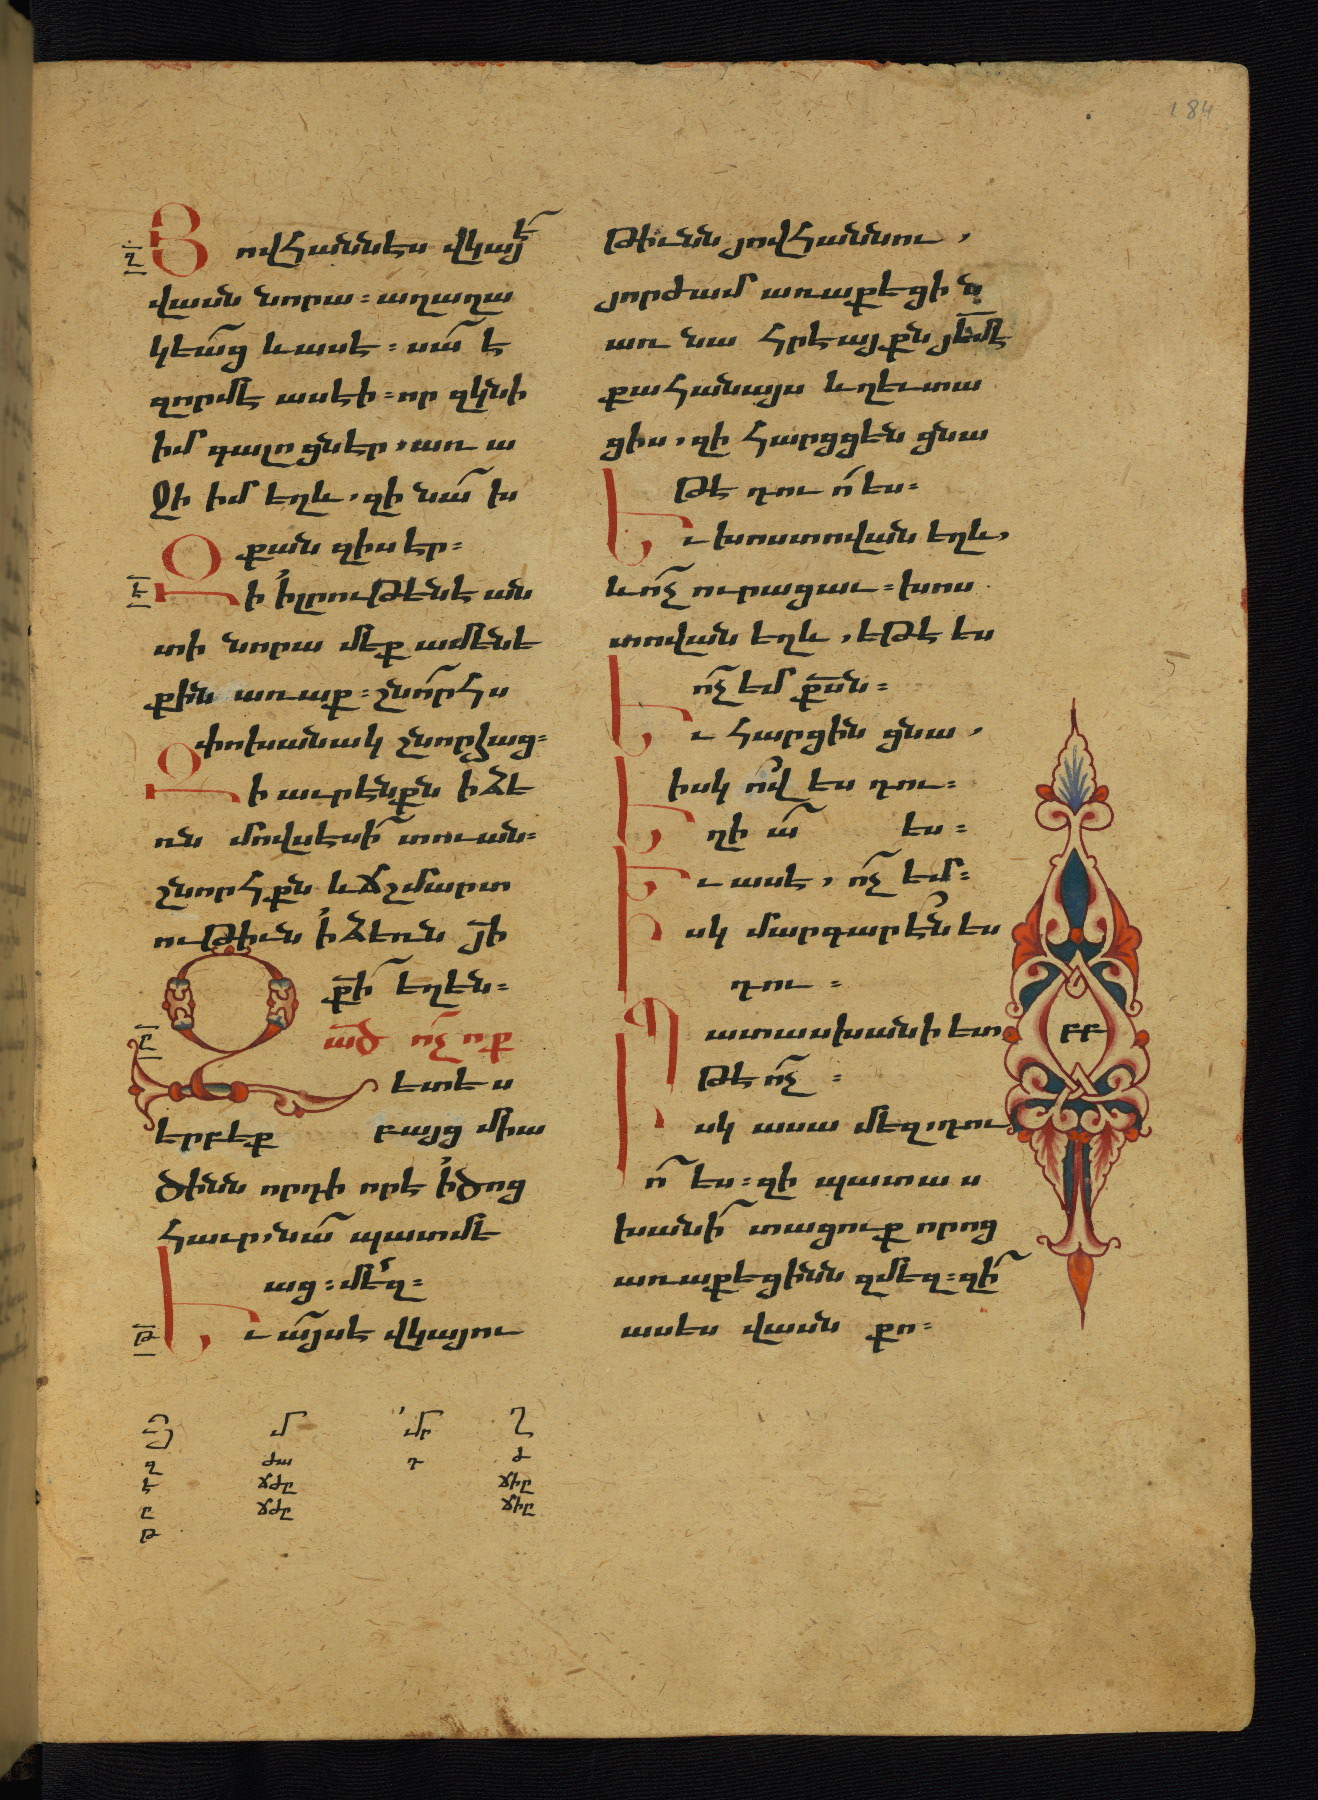 184
Յովհաննէս վկայէ՛
զ
վասն նորա։ աղաղա
կեա՜ց և ասէ։ սա՜ է
զորմէ ասէի։ որ զկնի
իմ գալոցն էր, առ ա
ջի իմ եղև, զի նա՜խ
քան զիս էր։
է
Զի ի՛ լրութենէ ան
տի նորա մեք ամենե
քին առաք։ շնո՜րհս
փոխանակ շնորհաց։
Զի աւրէնքն ի ձե
ռն մովսէսի՜ տուան։
շնորհքն և ճշմարտ
ութիւն ի՛ ձեռն յ̅ի
ք̅ի՜ եղեն։
ը
Զա̅ծ ո՜չ ոք
ետես
երբեք բայց միա
ծինն որդի որ է ի՛ ծոց
հաւր, նա՜ պատմե
աց։ մե՛զ։
թ
Եւ ա՜յս է վկայու
թիւնն յովհաննու,
յորժամ առաքեցին
առ նա հրէայքն յե̅մէ
քահանայս և ղևտա
ցիս, զի հարցցեն ցնա
թէ դու ո՜ ես։
Եւ խոստովան եղև,
և ո՜չ ուրացաւ։ խոս
տովան եղև, եթէ ես
ո՜չ եմ ք̅սն։
Եւ հարցին ցնա,
իսկ ո՜վ ես դու։
Եղի ա՜ ես։
Եւ ասէ, ո՜չ եմ։
Իսկ մարգարէն ես
դու։
Պատասխանի ետ
բբ
թէ ո՜չ։
Իսկ ասա մեզ, դու
ո՜ ես։ զի պատաս
խանի՜ տացուք որոց
առաքեցինն զմեզ։ զի՜
ասես վասն քո։
Յ մ մր Ղ
զ ժա դ ժ
է ճժը ճիը
ը ճժը ճիը
թ